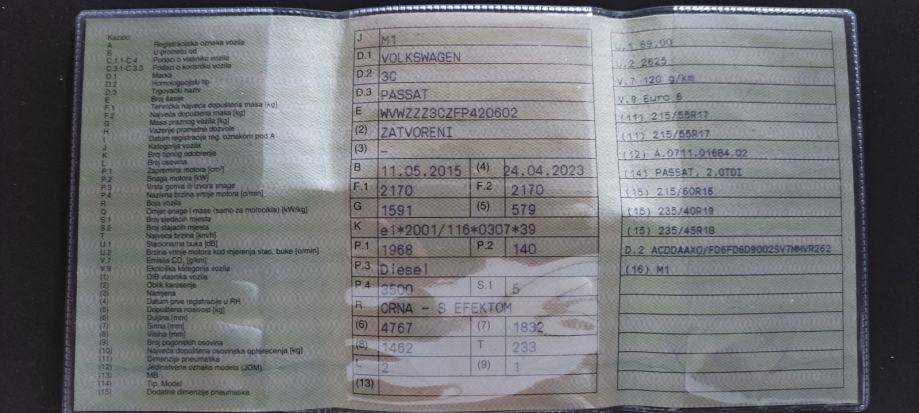 Kazalo:
A Registracijska oznaka vozila
B U prometu od
C.1.1-C.4 Podaci o vlasniku vozila
C.3.1-C.3.3 Podaci o korisniku vozila
D.1 Marka
D.2 Homologacijski tip
D.3 Trgovački naziv
E Broj šasije
F.1 Tehnička najveća dopuštena masa [kg]
F.2 Najveća dopuštena masa [kg]
G Masa praznog vozila [kg]
H Važenje prometne dozvole
I Datum registracije reg. oznakom pod A
J Kategorija vozila
K Broj tipnog odobrenja
L Broj osovina
P.1 Zapremina motora [cm³]
P.2 Snaga motora [kW]
P.3 Vrsta goriva ili izvora snage
P.4 Nazivna brzina vrtnje motora [o/min]
R Boja vozila
Q Omjer snage i mase (samo za motocikle) [kW/kg]
S.1 Broj sjedećih mjesta
S.2 Broj stajaćih mjesta
T Najveća brzina [km/h]
U.1 Stacionarna buka [dB]
U.2 Brzina vrtnje motora kod mjerenja stac. buke [o/min]
V.7 Emisija CO₂ [g/km]
V.9 Ekološka kategorija vozila
(1) OIB vlasnika vozila
(2) Oblik karoserije
(3) Namjena
(4) Datum prve registracije u RH
(5) Dopuštena nosivost [kg]
(6) Duljina [mm]
(7) Širina [mm]
(8) Visina [mm]
(9) Broj pogonskih osovina
(10) Najveća dopuštena osovinska opterećenja [kg]
(11) Dimenzije pneumatika
(12) Jedinstvena oznaka modela (JOM)
(13) MB
(14) Tip, Model
(15) Dodatne dimenzije pneumatika
J M1
D.1 VOLKSWAGEN
D.2 3C
D.3 PASSAT
E WVWZZZ3CZFP420602
(2) ZATVORENI
(3) –
B 11.05.2015 (4) 24.04.2023
F.1 2170 F.2 2170
G 1591 (5) 579
K e1*2001/116*0307*39
P.1 1968 P.2 140
P.3 Diesel
P.4 3500 S.1 5
R CRNA - S EFEKTOM
(6) 4767 (7) 1832
(8) 1462 T 233
L 2 (9) 1
(13)
U.1 69,00
U.2 2625
V.7 120 g/km
V.9 Euro 6
(11) 215/55R17
(11) 215/55R17
(12) A.0711.01684.02
(14) PASSAT, 2.0TDI
(15) 215/60R16
(15) 235/40R19
(15) 235/45R18
D.2 ACDDAAX0/FD6FD6D9002SV7MMVR262
(16) M1